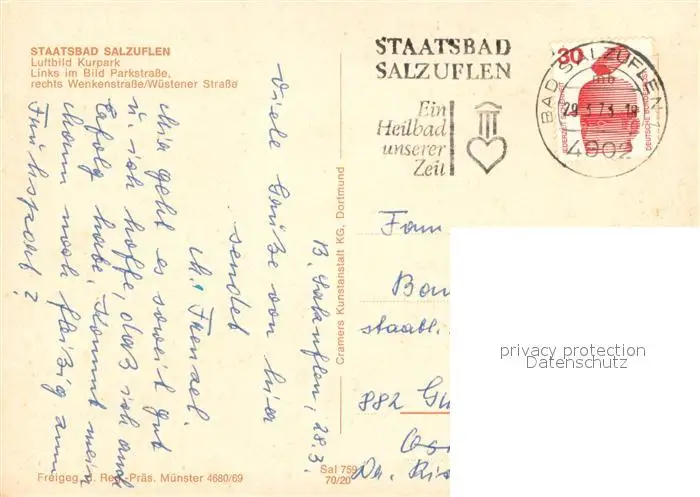 STAATSBAD SALZUFLEN
Luftbild Kurpark
Links im Bild Parkstraße,
rechts Wenkenstraße/Wüstener Straße
STAATSBAD
SALZUFLEN
Ein
Heilbad
unserer
Zeit
30
BAD SALZUFLEN
mb
29.3.73 - 18
4902
JEDERZEIT SICHERHEIT
DEUTSCHE BUNDESPOST
B. Salzuflen, 28.3.
Viele Grüße von hier
sendet
M. Frenzel.
Mir geht es soweit gut
u. ich hoffe, daß ich auch
Erfolg habe. Kommt mein
Mann noch fleißig zum
Frühsport?
Cramers Kunstanstalt KG. Dortmund
Fam
staatl.
882
Freigeg. d. Reg.-Präs. Münster 4680/69
Sal 759
70/20
privacy protection
Datenschutz